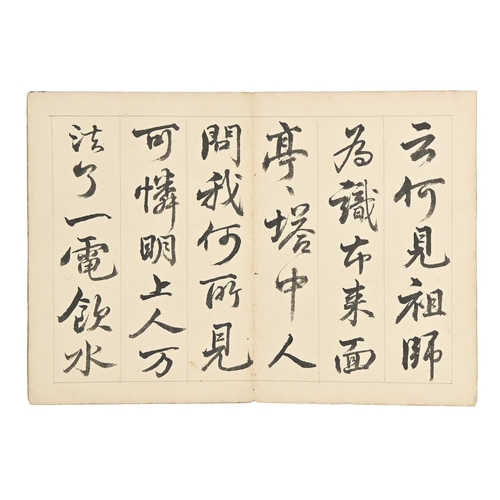 云何見祖師
為識本来面
亭〻塔中人
問我何所見
可憐明上人万
法了一電飲水